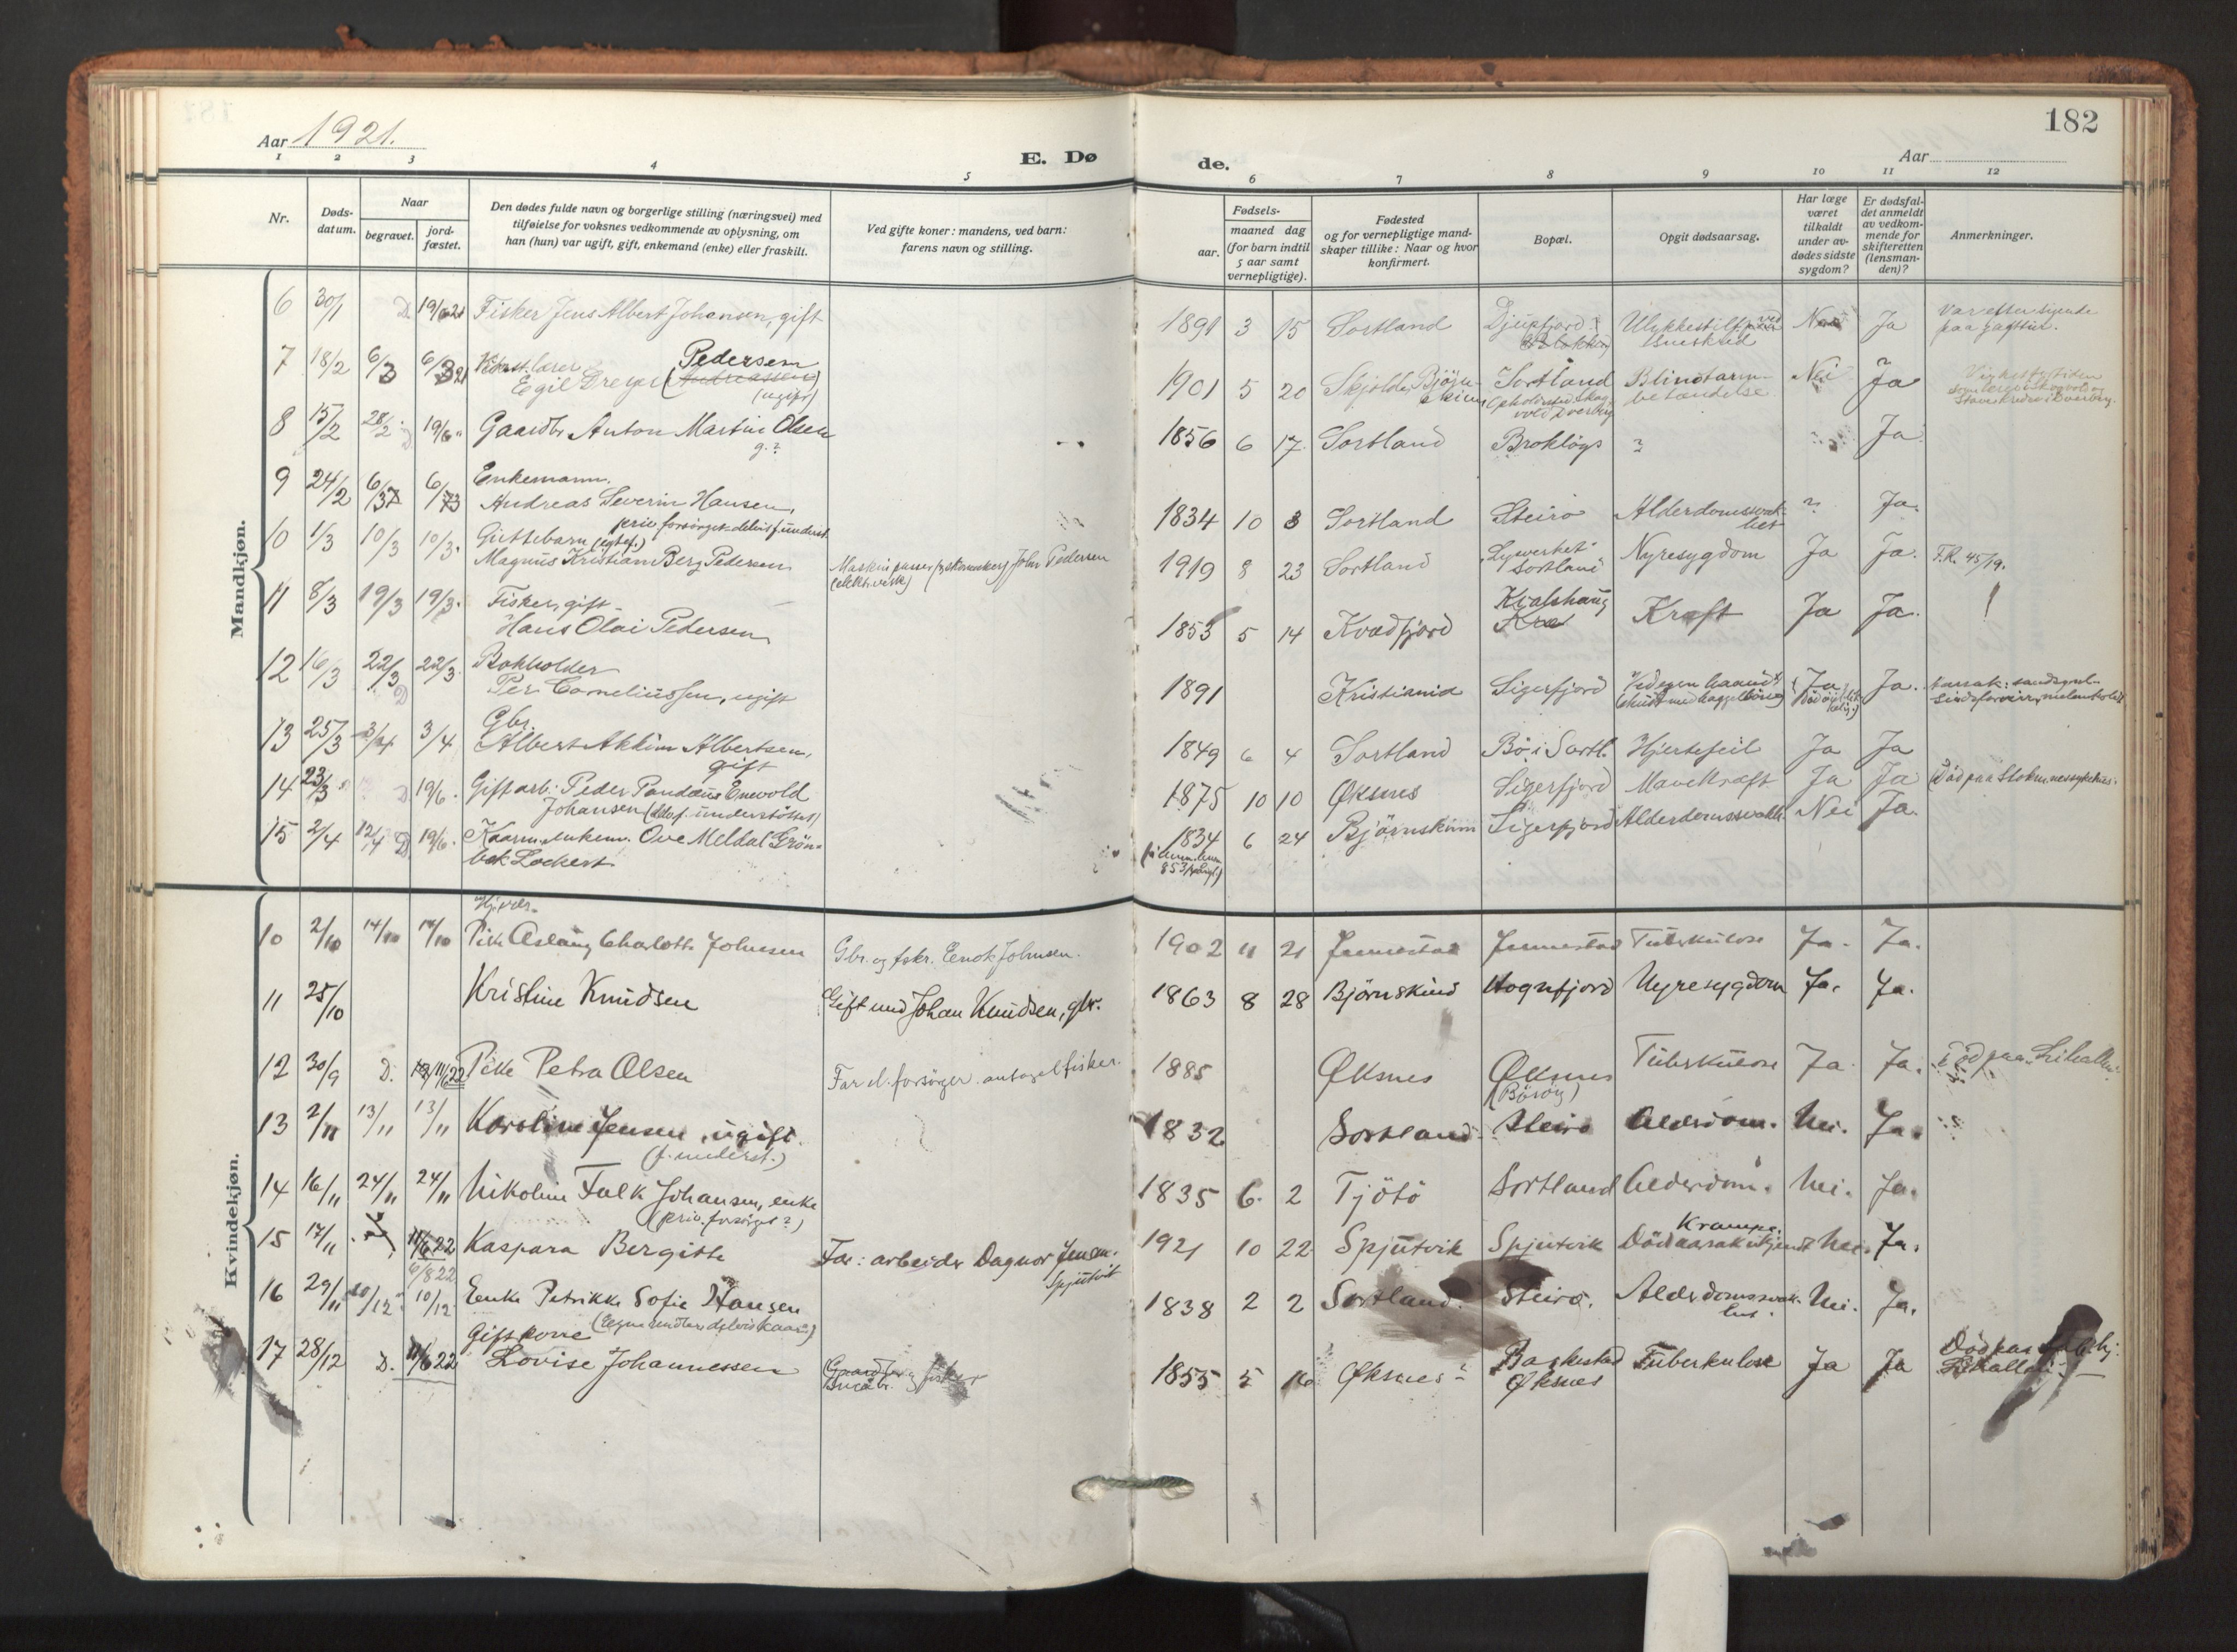 182
Aar 1921.
E. Dø
de.
Aar
1 2 3 4 5 6 7 8 9 10 11 12
Nr.
Døds-
datum.
Naar
begravet.
jord-
fæstet.
Den dødes fulde navn og borgerlige stilling (næringsvei) med
tilføielse for voksnes vedkommende av oplysning, om
han (hun) var ugift, gift, enkemand (enke) eller fraskilt.
Ved gifte koner: mandens, ved barn:
farens navn og stilling.
Fødsels-
aar.
maaned dag
(for barn indtil
5 aar samt
vernepligtige).
Fødested
og for vernepligtige mand-
skaper tillike: Naar og hvor
konfirmert.
Bopæl.
Opgit dødsaarsag.
Har læge
været
tilkaldt
under av-
dødes sidste
sygdom?
Er dødsfal-
det anmeldt
av vedkom-
mende for
skifteretten
(lensman-
den)?
Anmerkninger.
Mandkjøn.
6 30/1 D. Fisker Jens Albert Johansen, gift 1891 3 15 Sortland Djupfjord Ja
paa jagttur.
7 18/2 6/3 Pedersen
Egil Dreyer (Andreassen)
(ugift) 1901 5 20 Sortland Blindtarm-
betændelse Nei Ja
8 15/2 28/2 D 19/6 Gaardbr. Anton Martin Olsen
g.? 1856 6 17 Sortland Brokløys ? Ja
9 24/2 Enkemann.
Andreas Severin Hansen, 1834 10 3 Sortland Steiro Alderdomssvak-
het ? Ja.
priv. forsørget delvis f. underst.
10 1/3 10/3 10/3. Guttebarn (egtef.)
Magnus Kristian Berg Pedersen (elektr.verk) 1919 8 23 Sortland Lysverket
Sortland Nyresygdom Ja Ja. F.R. 45/19.
11 8/3 19/3 19/3. Fisker, gift
Hans Olai Pedersen 1853 5 14 Kvædfjord Kjalshaug Kræft Ja Ja.
12 16/3 22/3 22/3. D Bokholder
Per Corneliussen, ugift 1891 Kristiania Sigerfjord Ved egen haand Ja Ja.
13 25/3 3/4 3/4 Gbr.
Albert Akkim Albertsen,
gift 1849 6 4 Sortland Bø i Sortl. Hjertefeil Ja Ja
14 23/3 D 19/6. Gift arb. Peder Pandæus Enevold
Johansen 1875 10 10 Øksnes Sigerfjord Mavekræft Ja Ja Død paa Stokmarknes sykehus.
15 2/4 12/4 D 19/6. Kaarm. enkem. Ove Meldal Grøn-
bek Lockert 1834 6 24 Bjørnskinn Sigerfjord Alderdomssvakh. Nei Ja.
Kvindekjøn.
10 2/10 14/10 14/10 Pike Aslaug Charlotte Johnsen Gbr. og fskr. Enok Johnsen. 1902 11 21 Jennestad Jennestad Tuberkulose Ja. Ja.
11 25/10 Kristine Knudsen Gift med Johan Knudsen, gbr. 1863 8 28 Bjørnskind Hognfjord Nyresygdom Ja. Ja.
12 30/9 D. Pike Petra Olsen Far d. forsørger antagel fisker. 1885 Øksnes Øksnes
(Børøy) Tuberkulose Ja Ja.
13 2/11 13/11 13/11 Karoline Jensen, ugift.
(f. underst.) 1832 Sortland Steiro Alderdom. Nei. Ja.
14 16/11 24/11 24/11 Nikoline Falk Johansen, enke
(priv. forsørget?) 1835 6. 2 Tjøtø Sortland Alderdom. Nei. Ja.
15 17/11 11/6 22 Kaspara Bergitte Far: arbeider Dagnor Jensen.
Spjutvik 1921 10 22 Spjutvik Spjutvik Krampe.
Dødsaarsak ukjendt Nei. Ja.
6/8 22
16 29/11 10/12 10/12 Enke Petrikke Sofie Hansen 1838 2 2 Sortland. Steiro. Alderdomssvak-
het. Nei. Ja.
17 28/12 D. 11/6 22 Gift kone
Lovise Johannessen Gaardbr. og fisker 1855 5 16 Øksnes? Barkestad
Øksnes Tuberkulose Ja Ja